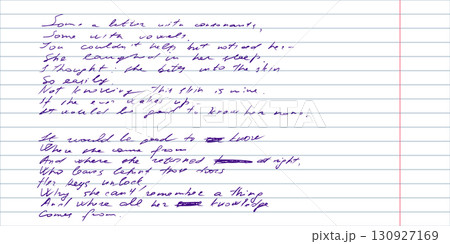 Some a letter with consonants,
Some with vowels.
You couldn't help, but noticed her.
She laughed in her sleep.
I thought: she bites into the skin
So easily.
Not knowing this skin is mine.
If she ever wakes up,
It would be good to know her name.
It would be good to know
Where she came from
And where she returned at night,
Who leaves behind those trees
Her keys unlock
Why she can't remember a thing
And where all her knowledge
Comes from.
PIXTA
pixta.jp - 130927169